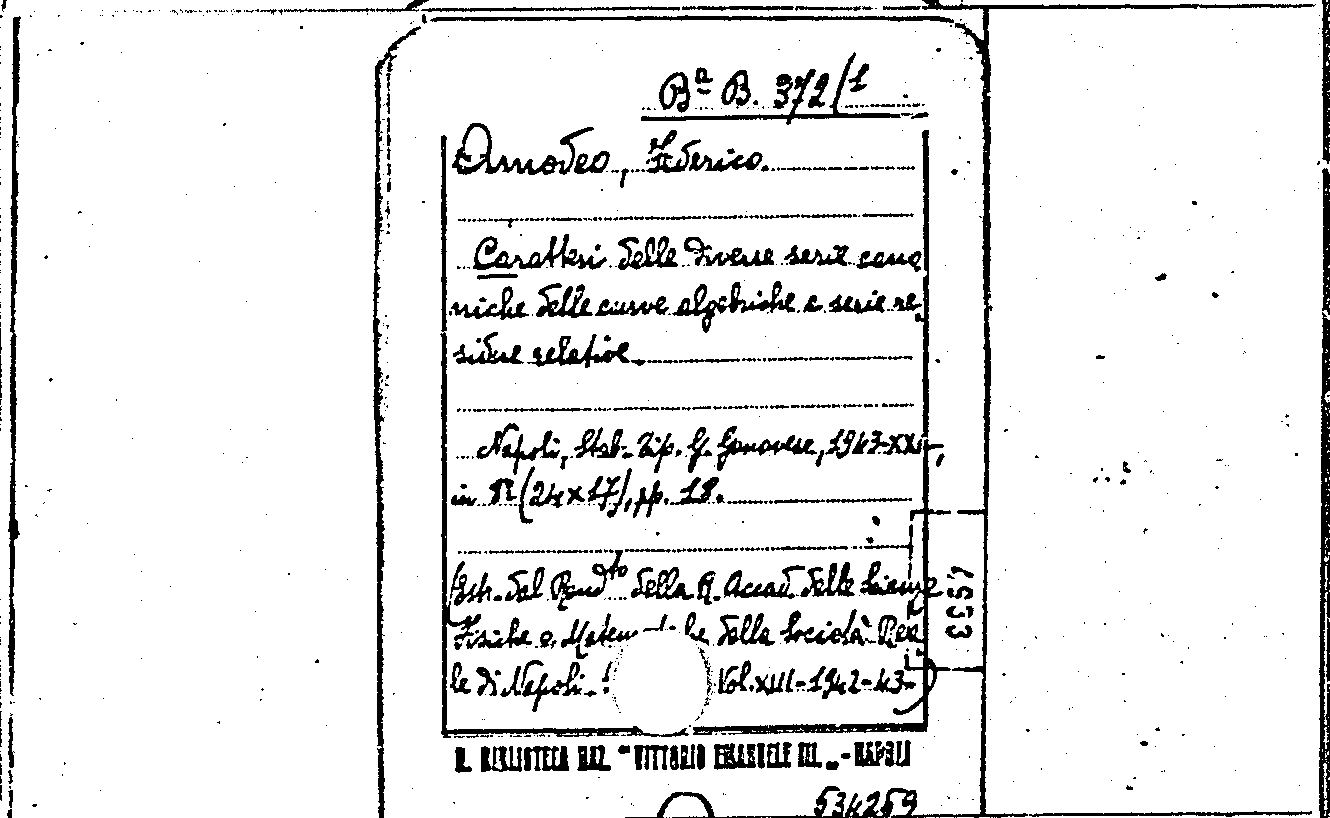 Bª B. 372/1
Amodeo, Federico.
Caratteri delle diverse serie cano
niche delle curve algebriche e serie re
sidue relative.
Napoli, Stab. Tip. G. Genovese, 1943-XXI,
in 8° (24x17), pp. 18.
(Estr. dal Rend.to della R. Accad. delle Scienze
Fisiche e Matem he della Società Rea
le di Napoli. Vol. XIII-1942-43-)
1533
R. BIBLIOTECA NAZ. "VITTORIO EMANUELE III." - NAPOLI
534259